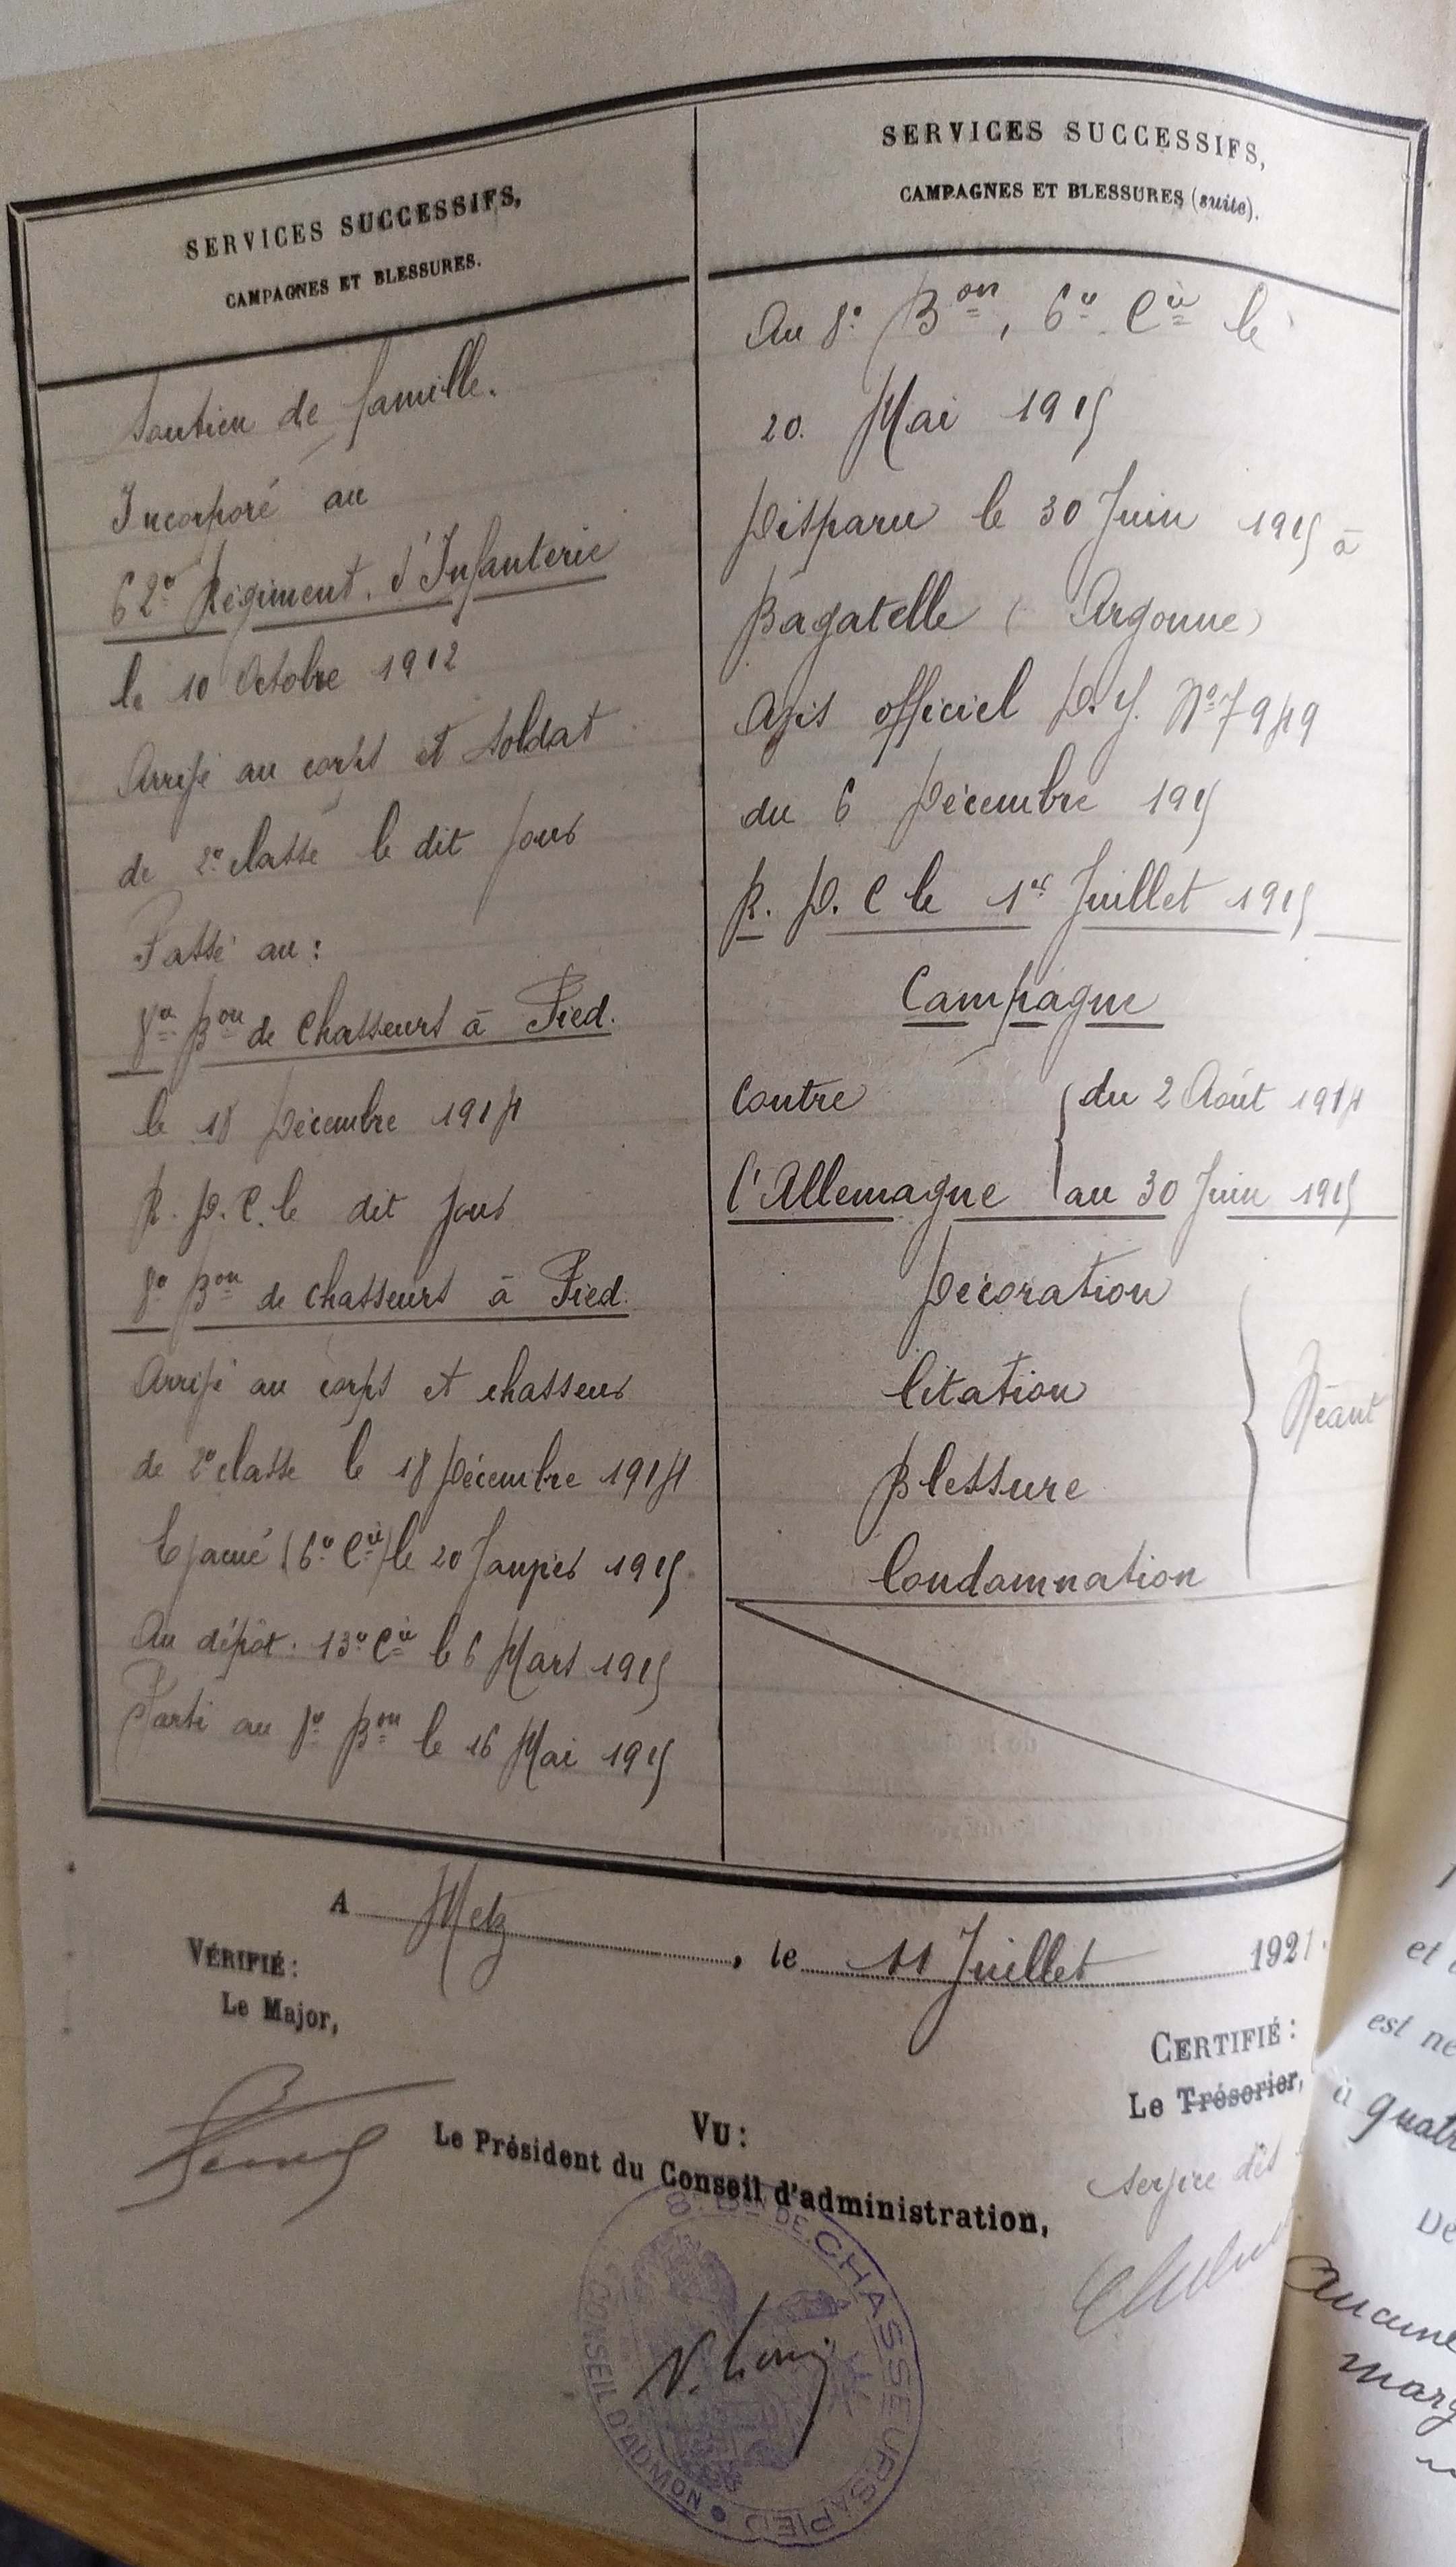 SERVICES SUCCESSIFS,
CAMPAGNES ET BLESSURES.
Soutien de famille.
Incorporé au
62e Régiment d'Infanterie
le 10 Octobre 1912
Arrivé au corps et soldat
de 2e classe le dit jour
Passé au :
8e Bon de Chasseurs à Pied.
le 18 Décembre 1914
R. D. C. le dit jour
8e Bon de chasseurs à Pied.
Arrivé au corps et chasseur
de 2e classe le 18 Décembre 1914
Evacué (6e Cie) le 20 Janvier 1915
Au dépôt. 13e Cie le 6 Mars 1915
Parti au 8e Bon le 16 Mai 1915
SERVICES SUCCESSIFS,
CAMPAGNES ET BLESSURES (suite).
Au 8e Bon, 6e Cie le
20. Mai 1915
Disparu le 30 Juin 1915 à
Bagatelle (Argonne)
Avis officiel D. Y. No 7949
du 6 Décembre 1915
R. D. C le 1er Juillet 1915
Campagne
Contre { du 2 Août 1914
l'Allemagne { au 30 Juin 1915
Décoration
Citation
Néant
Blessure
Condamnation
A Metz, le 11 Juillet 1921.
VÉRIFIÉ :
Le Major,
CERTIFIÉ :
Le Trésorier,
service des
VU :
Le Président du Conseil d'administration,
8e Bon DE CHASSEURS A PIED
CONSEIL D'ADMON
et
est né
à quatr
Dé
aucune
marg